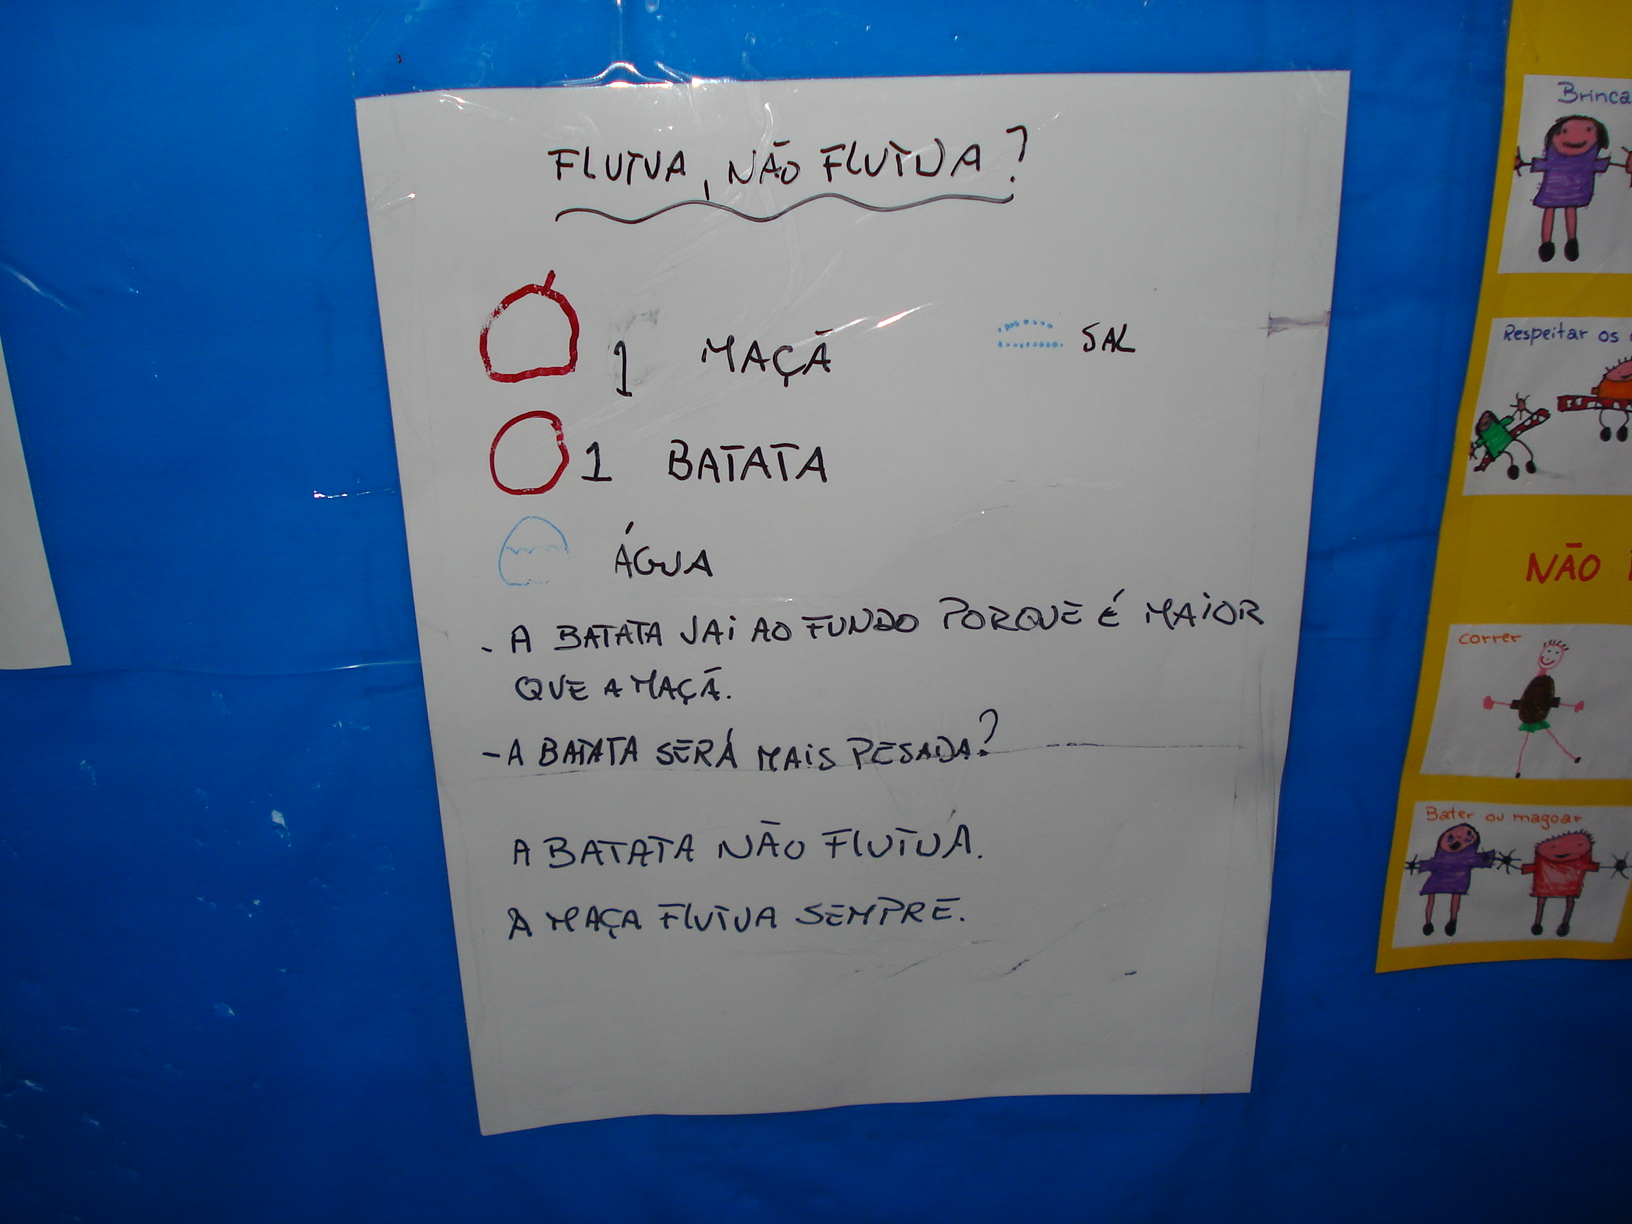 FLUTUA, NÃO FLUTUA?
1 MAÇÃ
SAL
1 BATATA
ÁGUA
- A BATATA JAI AO FUNDO PORQUE É MAIOR
QUE A MAÇÃ.
- A BATATA SERÁ MAIS PESADA?
A BATATA NÃO FLUTUA.
A MAÇA FLUTUA SEMPRE.
Respeitar os
NÃO
correr
Bater ou magoar